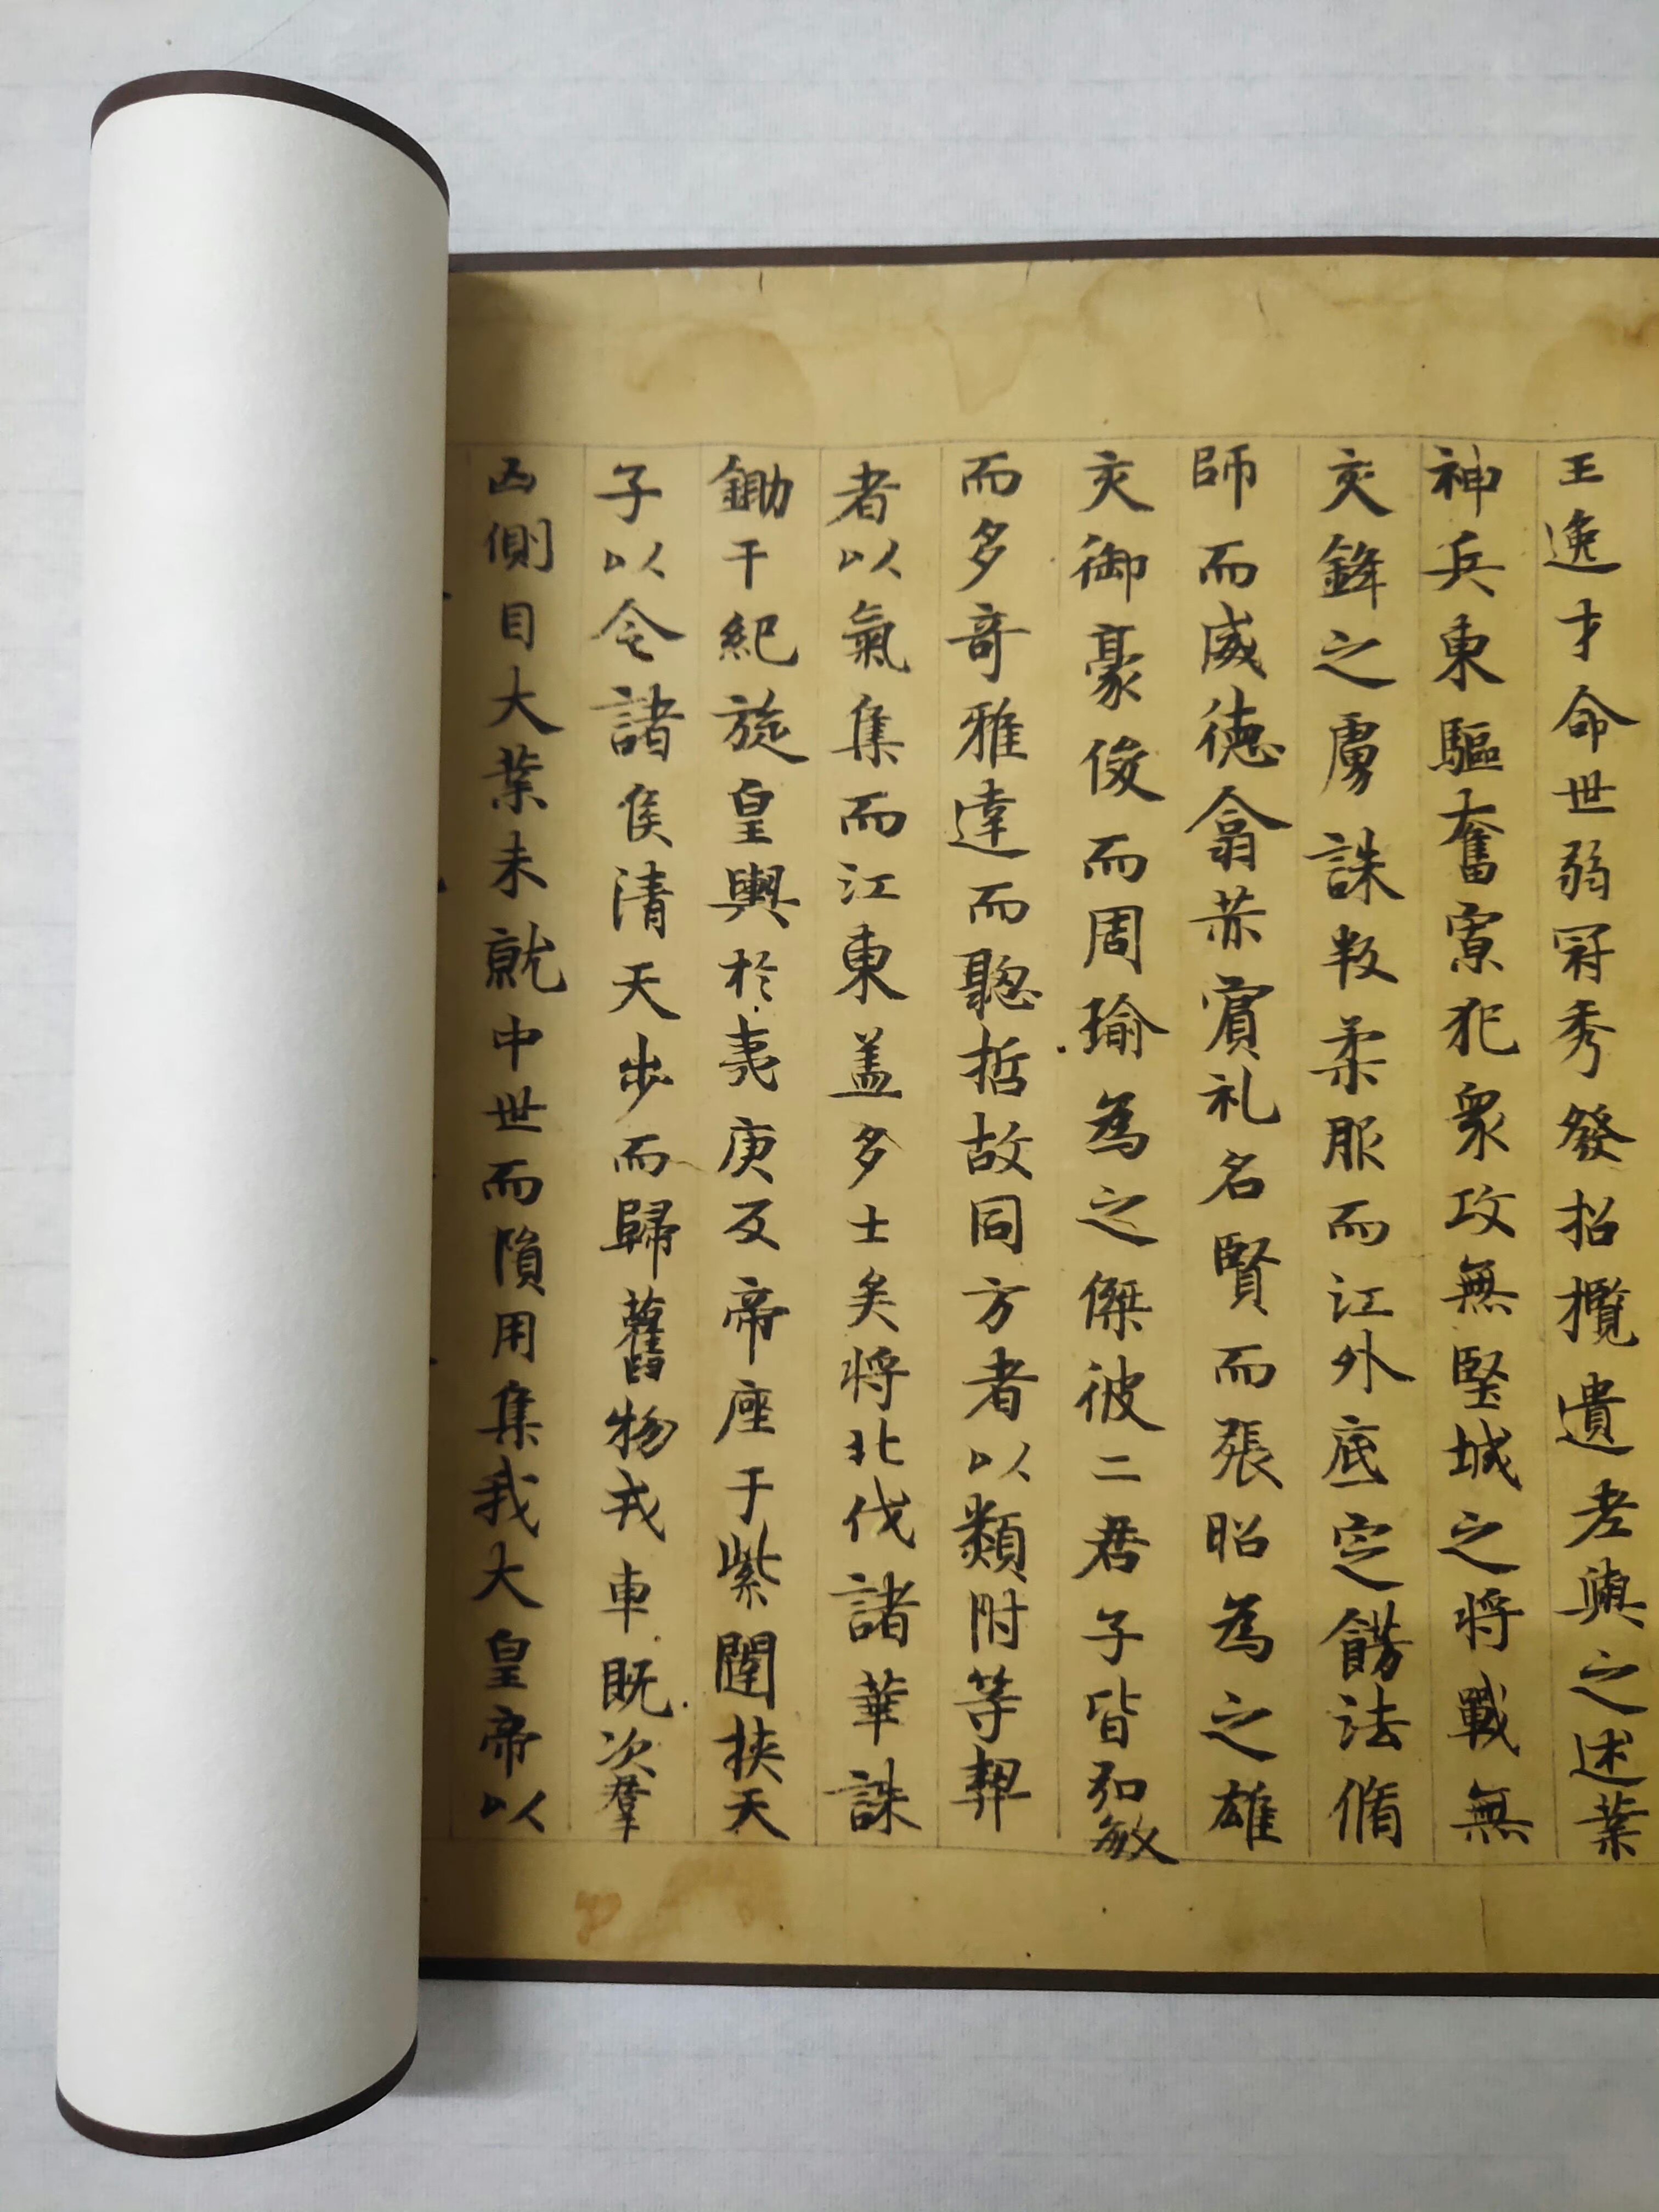 王逸才命世弱冠秀發招攬遺老與之述業
神兵東驅奮寡犯衆攻無堅城之將戰無
交鋒之虜誅叛柔服而江外底定餝法脩
師而威德翕赫賓礼名賢而張昭為之雄
交御豪俊而周瑜為之傑彼二君子皆弘敏
而多奇雅達而聰哲故同方者以類附等契
者以氣集而江東盖多士矣將北伐諸華誅
鋤干紀旋皇輿於夷庚反帝座于紫闥挾天
子以令諸侯清天步而歸舊物戎車既次羣
凶側目大業未就中世而隕用集我大皇帝以